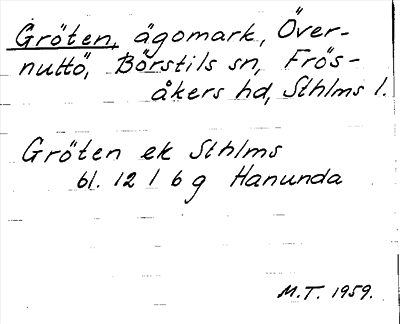 Gröten, ägomark, Över-
nuttö, Börstils sn, Frös-
åkers hd, Sthlms l.
Gröten ek Sthlms
bl. 12 1 6 g Hanunda
M.T. 1959.